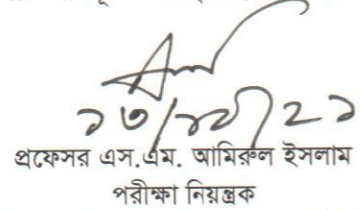 ১৩/১২/২১
প্রফেসর এস.এম. আমিরুল ইসলাম
পরীক্ষা নিয়ন্ত্রক